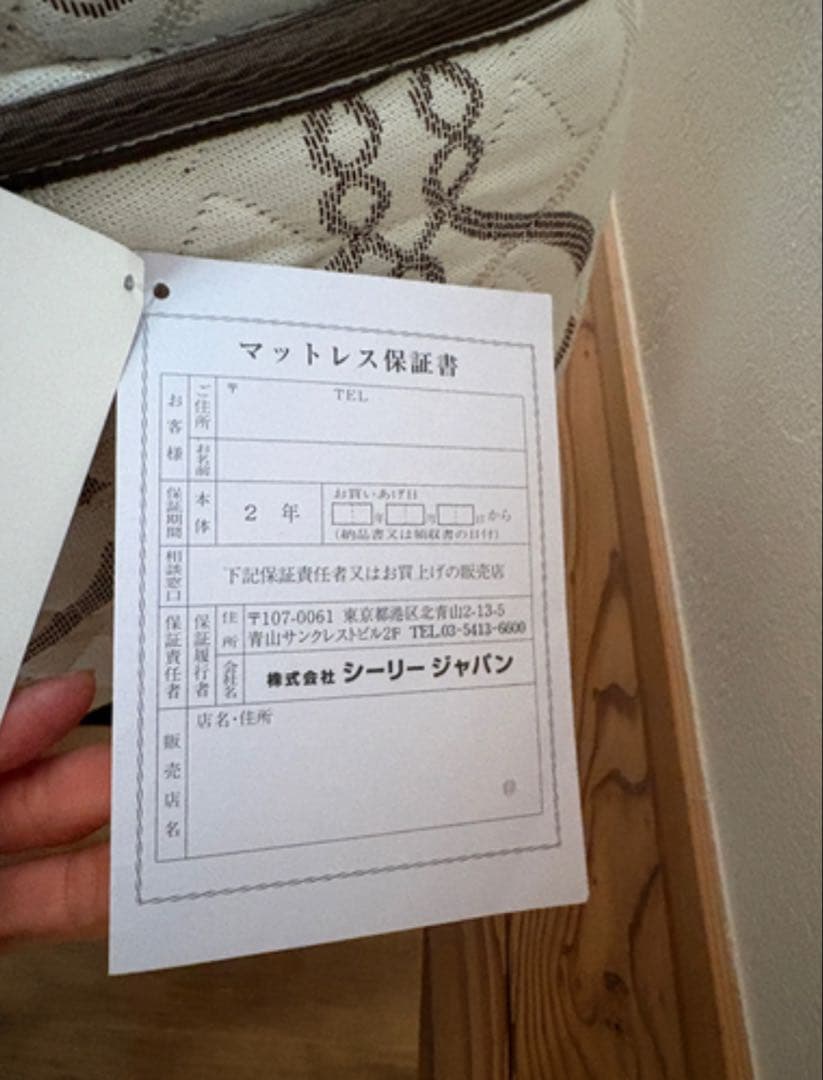 マットレス保証書
お客様
ご住所
〒 TEL
お名前
保証期間
本体
2 年
お買いあげ日
年 月 日から
(納品書又は領収書の日付)
相談窓口
下記保証責任者又はお買上げの販売店
保証責任者
保証履行者
住所
〒107-0061 東京都港区北青山2-13-5
青山サンクレストビル2F TEL.03-5413-6600
会社名
株式会社 シーリー ジャパン
販売店名
店名・住所